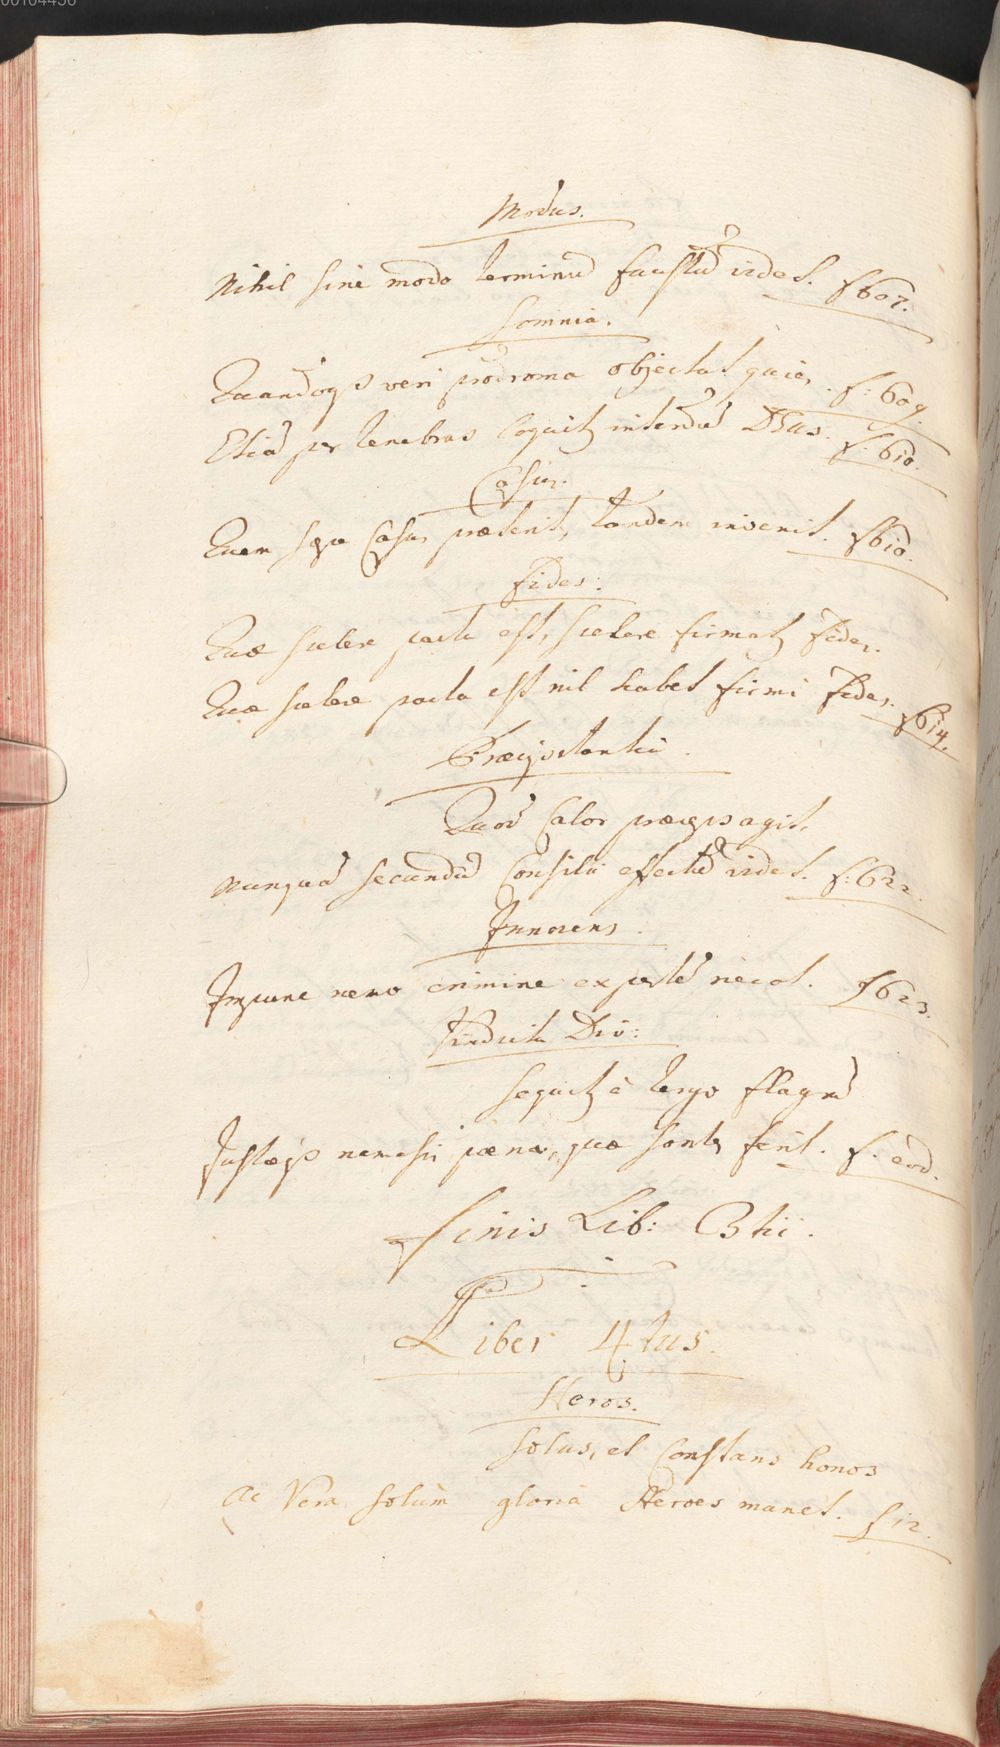 00104436
Modus.
Nihil sine modo terminū faustū videt. f 607.
Somnia.
Quandoqȝ veri prodroma objectat quies. f: 609.
Etiā per tenebras loquitȝ interdū DEus. f. 610.
Casus.
Quem sæpe Casus præterit, tandem invenit. f 610.
Fides:
Quæ scelere pacta est, scelere firmatȝ fides.
Quæ scelere pacta est nil habet firmi Fides. f 614.
Præcipitantia.
Quod Calor præceps agit,
Nunquā secundū Consilii effectū videt. f: 622.
Innocens.
Impune nemo crimine expertē necat. f 623.
Vindicta Div:
Sequitȝ è tergo flagrū
Justæqȝ nemesis pœna, quæ sontes ferit. f. eod.
Finis Lib: 3tii.
Liber 4tus.
Heros.
Solus, et Constans honos
Ac Vera solùm gloria Heroes manet. f 12.